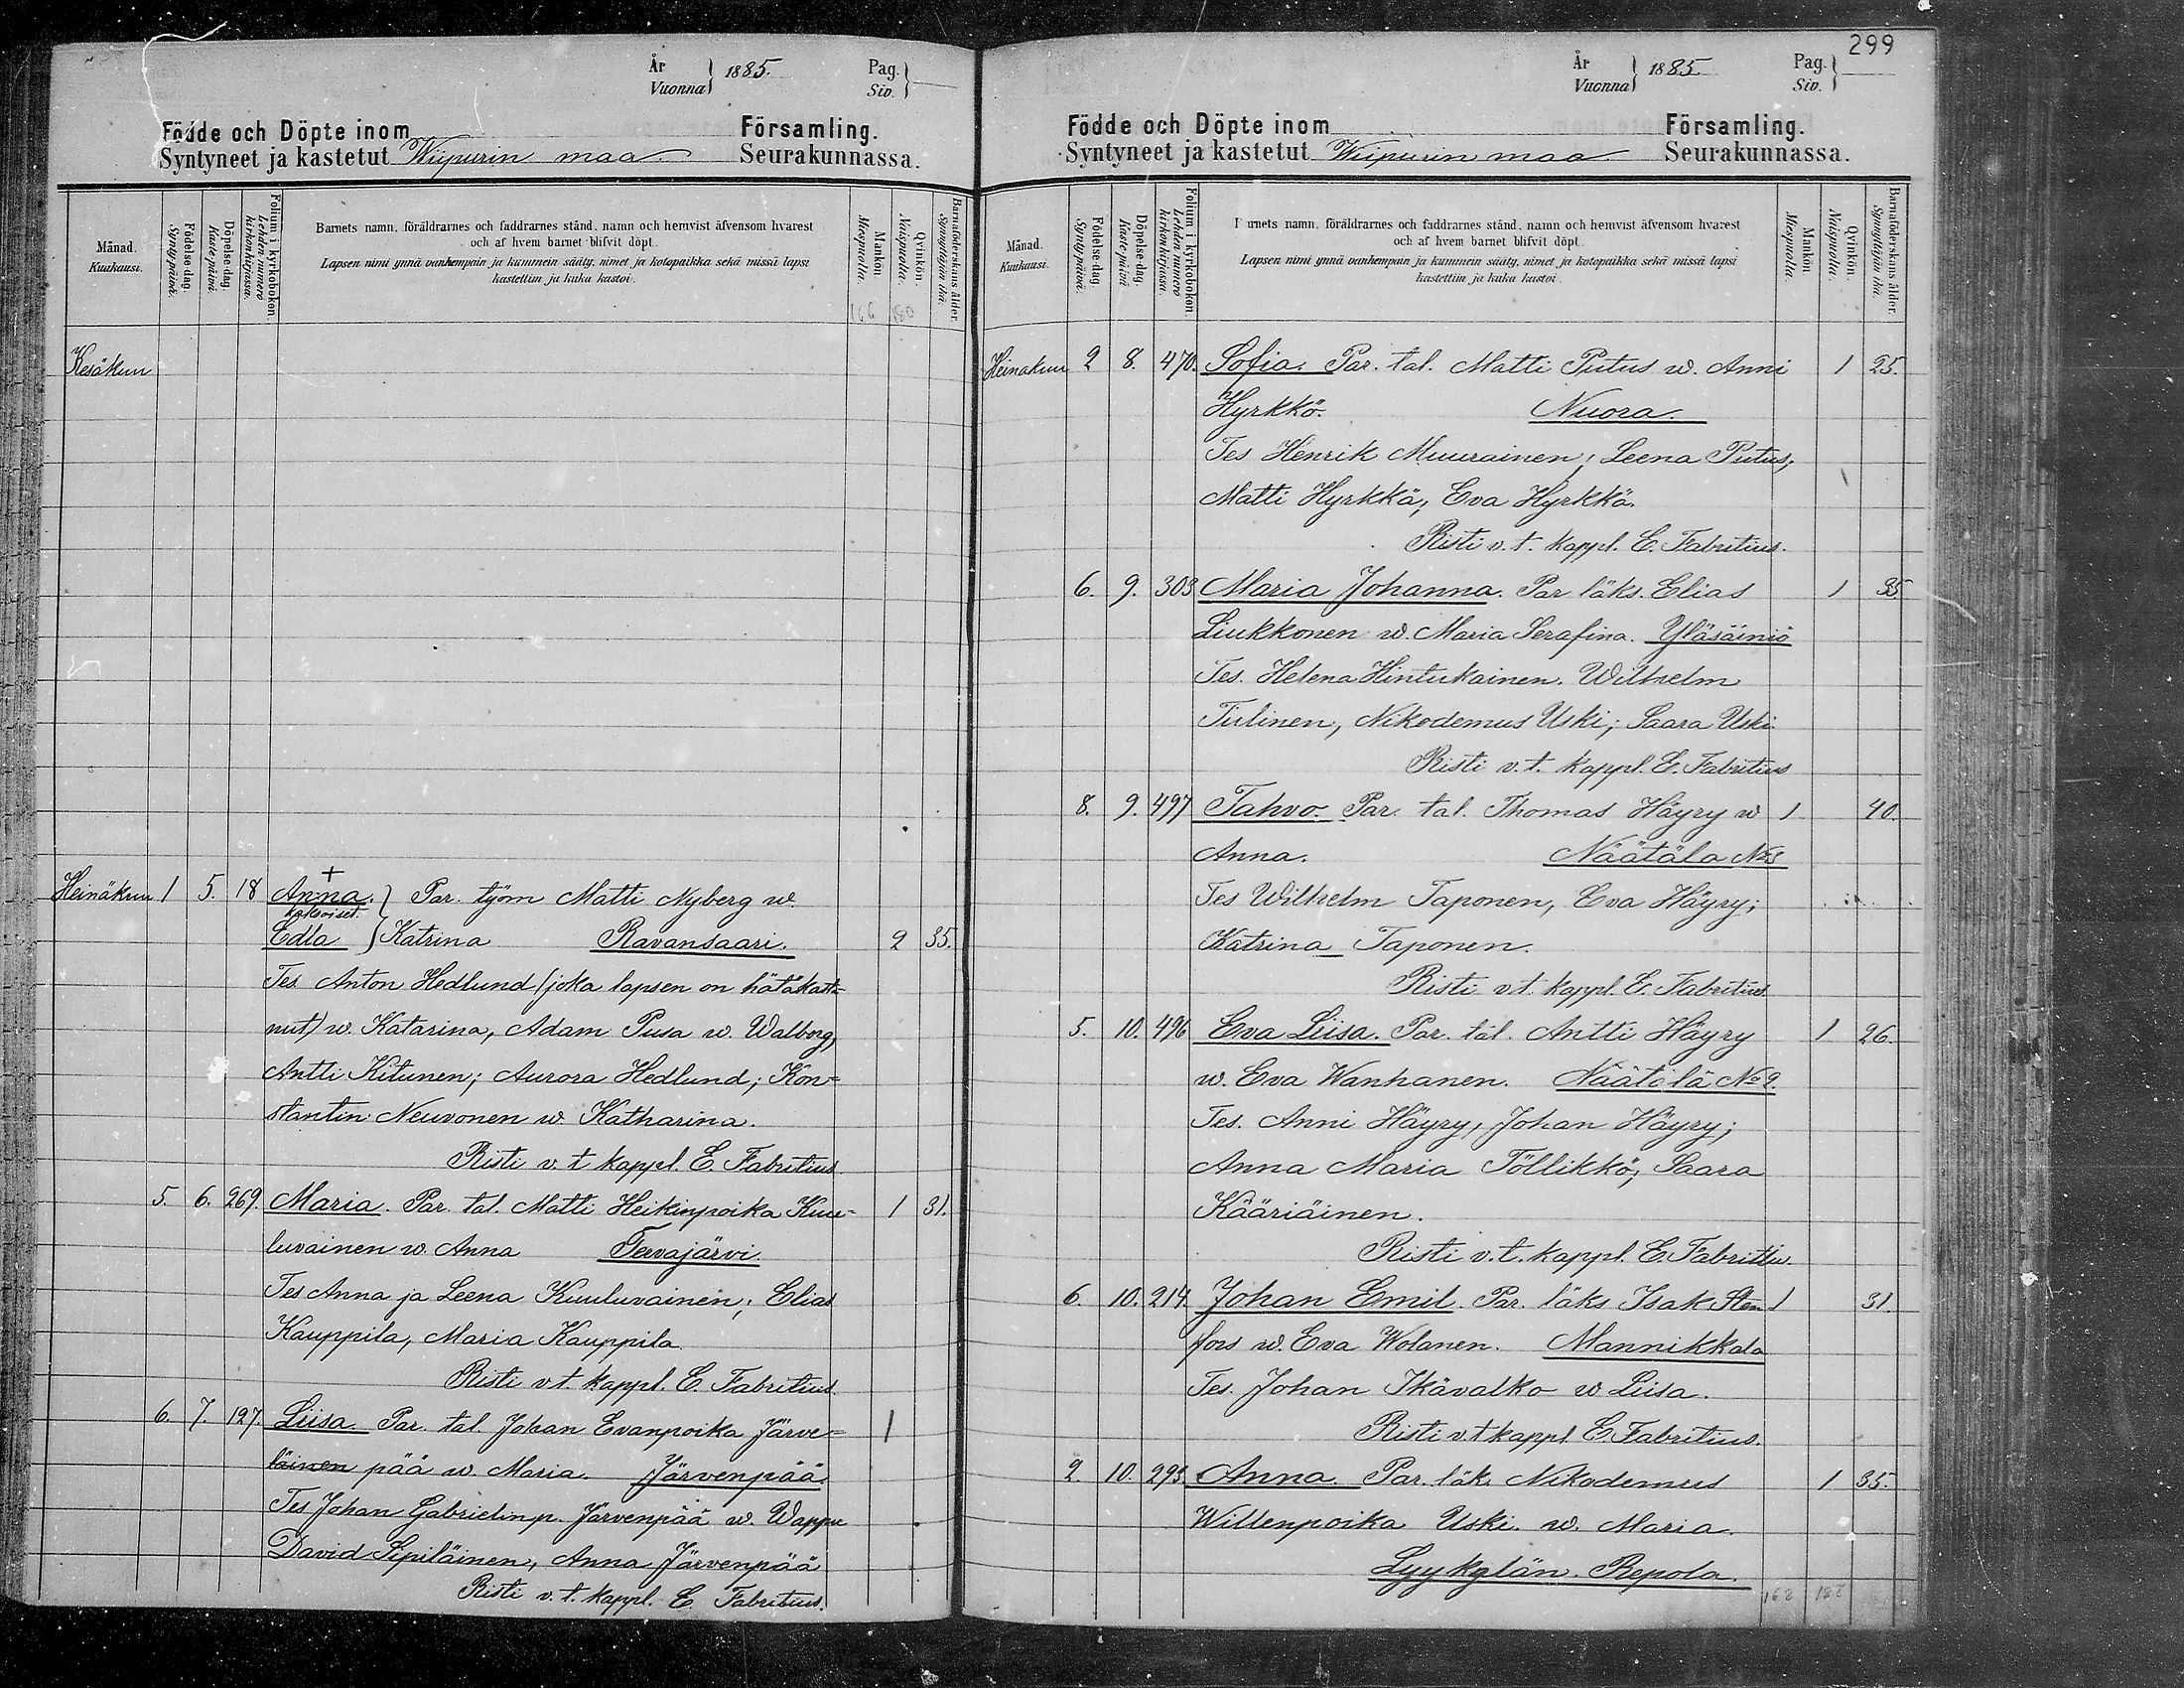 År
Vuonna } 1885.
Pag.
Siv. }
Födde och Döpte inom Församling.
Syntyneet ja kastetut Wiipurin maa Seurakunnassa.
Månad.
Kuukausi.
Födelse-dag.
Syntypäivä.
Döpelse-dag.
Kastepäivä.
Folium i kyrkobokon.
Lehden numero kirkonkirjassa.
Barnets namn, föräldrarnes och faddrarnes stånd, namn och hemvist äfvensom hvarest
och af hvem barnet blifvit döpt.
Lapsen nimi ynnä vanhempain ja kummein sääty, nimet ja kotopaikka sekä missä lapsi
kastettiin ja kuka kastoi.
Mankön.
Miespuolta.
Qvinkön.
Naispuolta.
Barnaföderskans ålder.
Synnyttäjän ikä.
166 180
Kesäkuu
Heinäkuu 1 5. 18 + Anna. } Par. työm Matti Nyberg w.
kaksoiset.
Edla } Katrina Ravansaari. 2 35.
Tes Anton Hedlund (joka lapsen on hätäkast-
nut) w. Katarina, Adam Pusa w. Walborg,
Antti Kitunen; Aurora Hedlund; Kon-
stantin Neuvonen w. Katharina.
Risti v. t kappl. E. Fabritius.
5. 6. 269. Maria. Par. tal. Matti Heikinpoika Kuu- 1 31.
luvainen w. Anna Tervajärvi.
Tes Anna ja Leena Kuuluvainen; Elias
Kauppila, Maria Kauppila.
Risti v.t. kappl. E. Fabritius.
6. 7. 127. Liisa. Par. tal. Johan Evanpoika Järve- 1
läinen pää w. Maria. Järvenpää.
Tes Johan Gabrielinp. Järvenpää w. Wappu
David Sipiläinen, Anna Järvenpää
Risti v. t. kappl. E. Fabritius.
299
År
Vuonna } 1885
Pag.
Siv. }
Födde och Döpte inom Församling.
Syntyneet ja kastetut Wiipurin maa Seurakunnassa.
Månad.
Kuukausi.
Födelse-dag.
Syntypäivä.
Döpelse-dag.
Kastepäivä
Folium i kyrkobokon.
Lehden numero kirkonkirjassa.
Barnets namn, föräldrarnes och faddrarnes stånd, namn och hemvist äfvensom hvarest
och af hvem barnet blifvit döpt.
Lapsen nimi ynnä vanhempain ja kummein sääty, nimet ja kotopaikka sekä missä lapsi
kastettiin ja kuka kastoi.
Mankön.
Miespuolta.
Qvinkön.
Naispuolta.
Barnaföderskans ålder.
Synnyttäjän ikä.
Heinakuu 2 8. 470. Sofia. Par. tal. Matti Putus w. Anni 1 25.
Hyrkkö. Nuora.
Tes Henrik Muurainen; Leena Putus;
Matti Hyrkkä, Eva Hyrkkä.
Risti v. t. kappl. E. Fabritius.
6. 9. 303 Maria Johanna. Par läks. Elias 1 35
Liukkonen w. Maria Serafina. Yläsäiniö
Tes. Helena Hintukainen. Wilhelm
Tiilinen, Nikodemus Uski; Saara Uski.
Risti v. t. kappl. E. Fabritius
8. 9. 497 Tahvo. Par. tal. Thomas Häyry w 1 40.
Anna. Näätälä No 8
Tes Wilhelm Taponen, Eva Häyry;
Katrina Taponen.
Risti v t. kappl. E. Fabritius.
5. 10. 496 Eva Liisa. Par. tal. Antti Häyry 1 26.
w. Eva Wanhanen. Näätälä No 9.
Tes. Anni Häyry, Johan Häyry;
Anna Maria Töllikkö; Saara
Kääriäinen.
Risti v. t. kappl. E. Fabritiu.
6. 10. 214. Johan Emil. Par. läks Isak Sten- 1 31.
fors w. Eva Wolanen. Mannikkala
Tes. Johan Ikävalko w Liisa.
Risti v. t kappl E. Fabritius.
2. 10. 293. Anna. Par. läk. Nikodemus 1 35.
Willenpoika Uski. w. Maria.
Lyykylän. Repola.
168 182